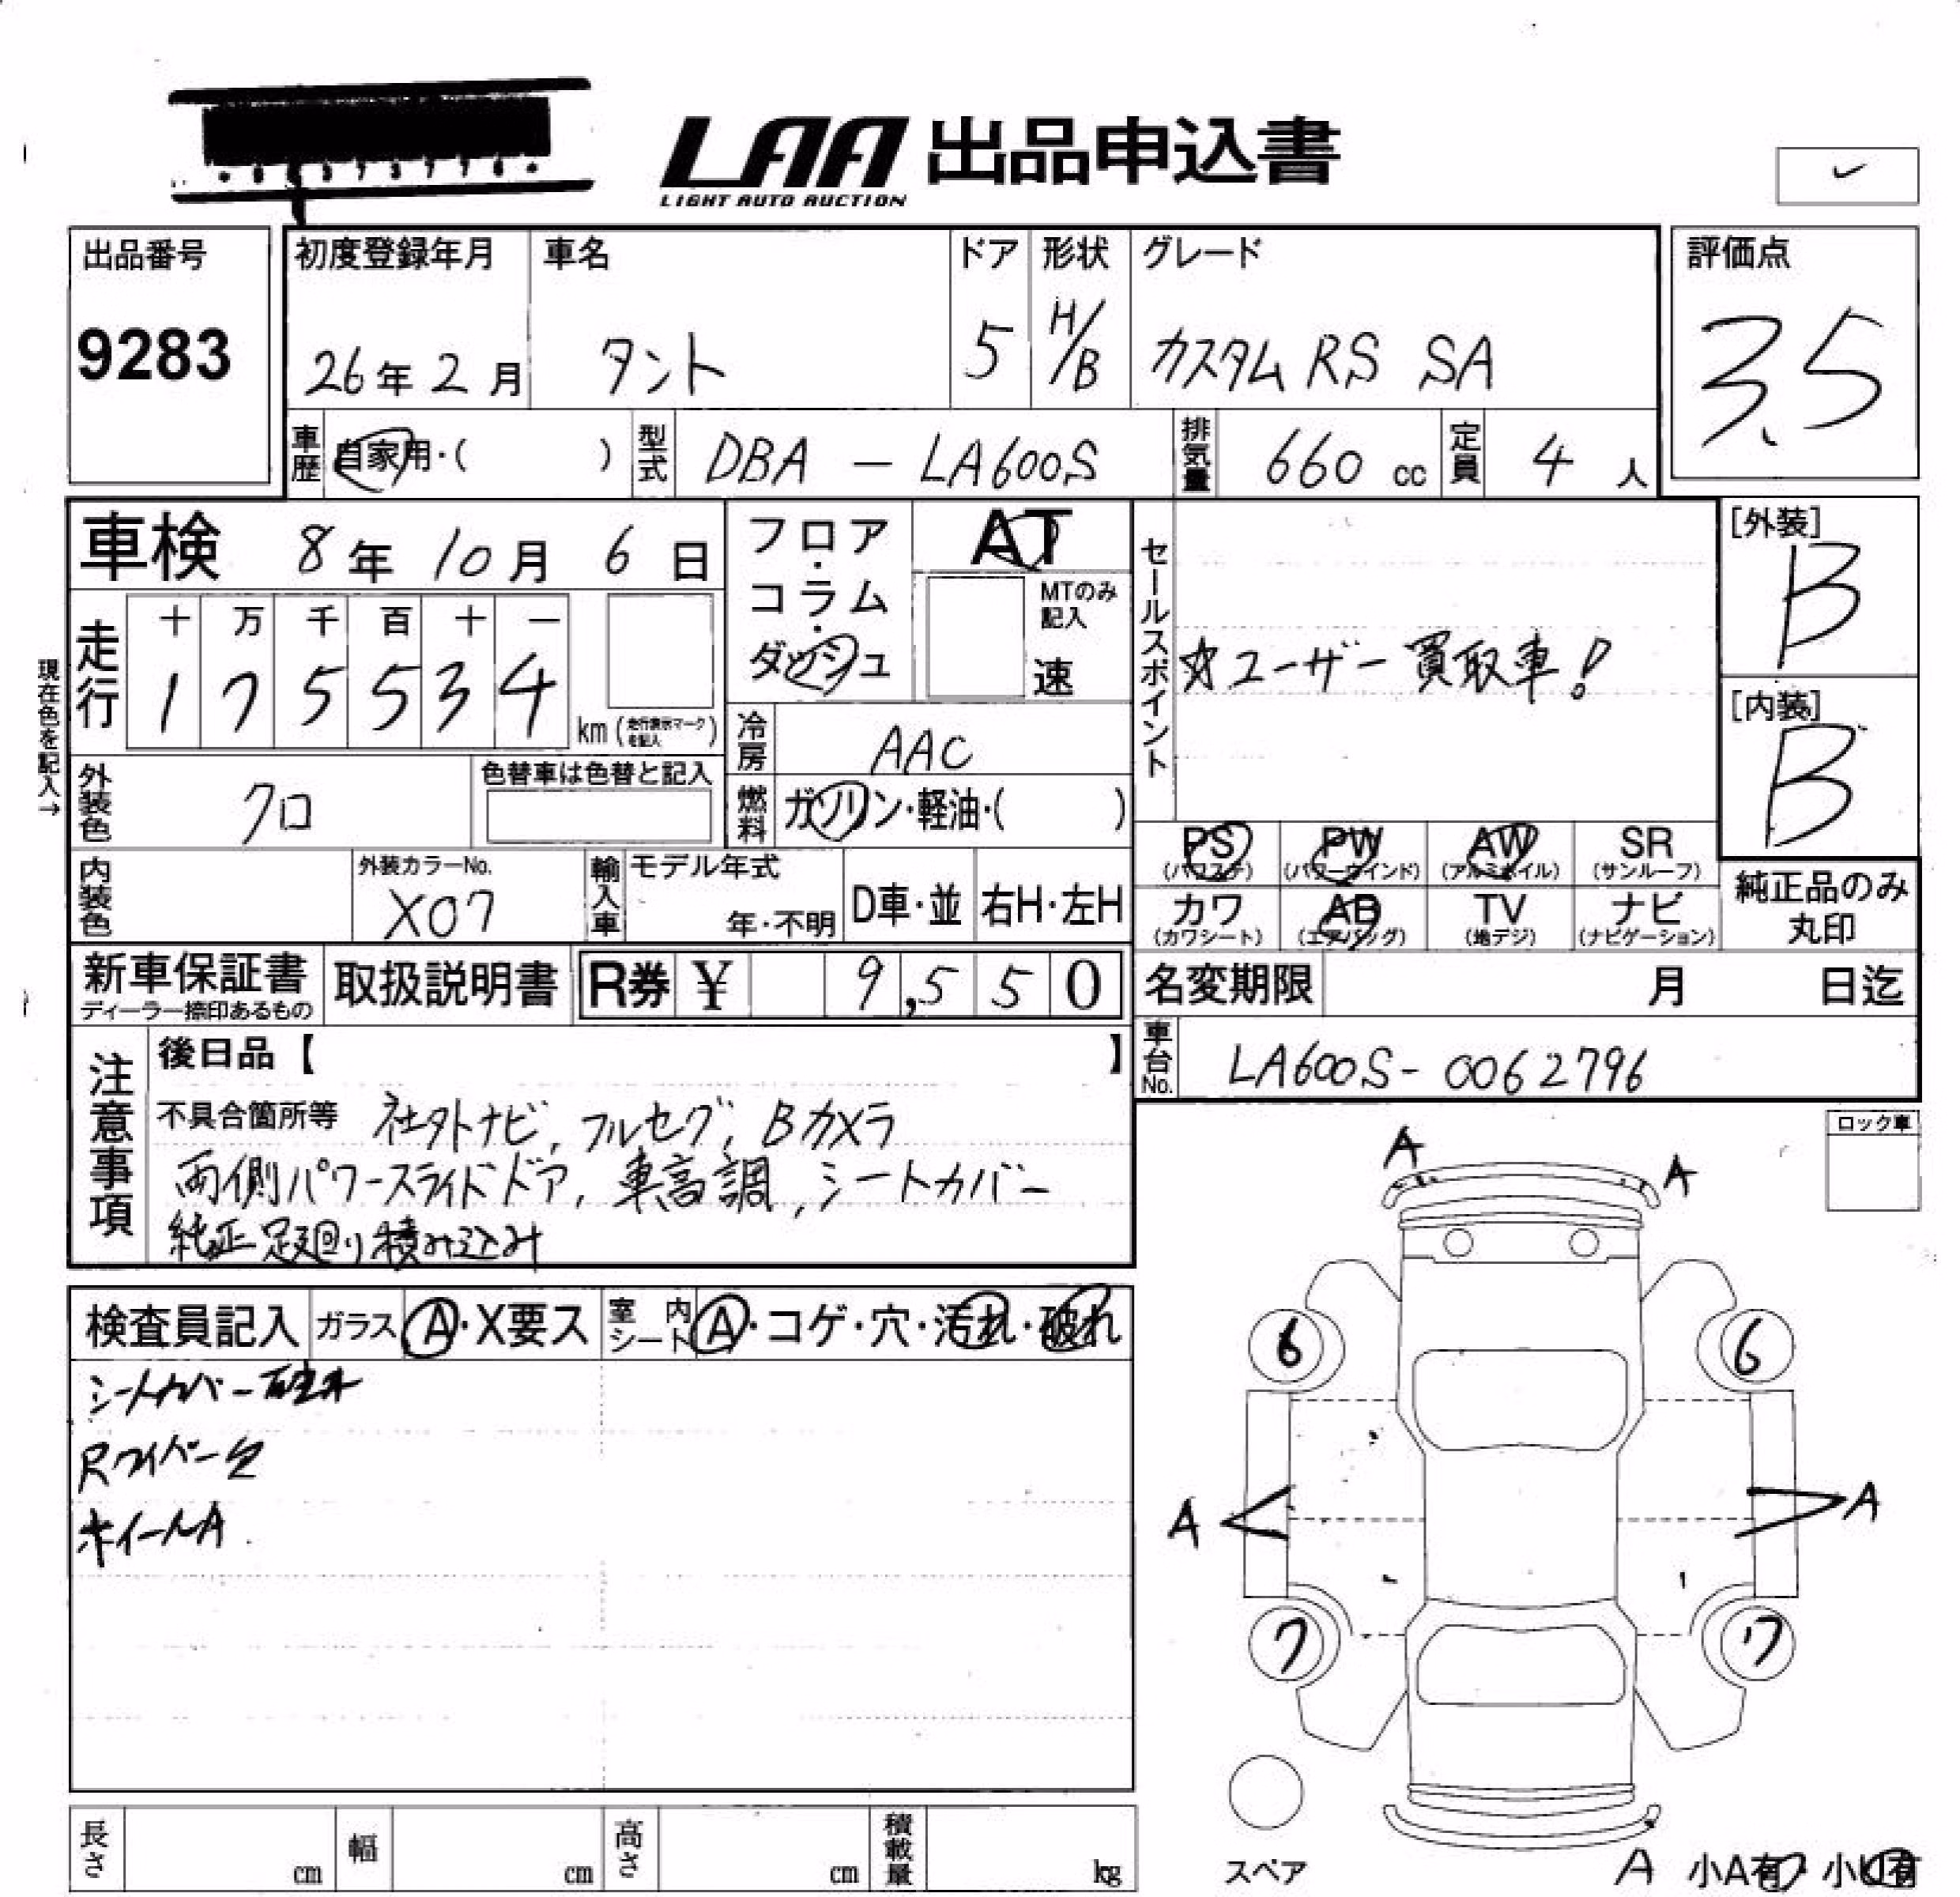 LAA 出品申込書
LIGHT AUTO AUCTION
出品番号
9283
初度登録年月
26年 2月
車名
タント
ドア
5
形状
H/B
グレード
カスタム RS SA
評価点
3.5
車歴 自家用・( )
型式 DBA - LA600S
排気量 660 cc
定員 4 人
車検 8年 10月 6日
フロア・コラム・ダッシュ
AT
MTのみ記入
速
セールスポイント
☆ユーザー買取車!
[外装]
B
[内装]
B
現在色を記入→
走行
十 万 千 百 十 一
1 7 5 5 3 4
km (走行表示マークを記入)
冷房 AAC
外装色 クロ
色替車は色替と記入
燃料 ガソリン・軽油・( )
PS (パワステ)
PW (パワーウインド)
AW (アルミホイル)
SR (サンルーフ)
カワ (カワシート)
AB (エアバッグ)
TV (地デジ)
ナビ (ナビゲーション)
純正品のみ丸印
内装色
外装カラーNo.
X07
輸入車
モデル年式
年・不明
D車・並
右H・左H
新車保証書
ディーラー捺印あるもの
取扱説明書
R券 ¥ 9,550
名変期限 月 日迄
車台No. LA600S-0062796
注意事項
後日品【 】
不具合箇所等 社外ナビ, フルセグ, Bカメラ
両側パワースライドドア, 車高調, シートカバー
純正足廻り積み込み
ロック車
検査員記入
ガラス A・X要ス
室内シート A・コゲ・穴・汚れ・破れ
シートカバー
Rワイパー欠
ホイールA
A
A
6
6
A
A
7
7
スペア
A 小A有 小U有
長さ cm
幅 cm
高さ cm
積載量 kg